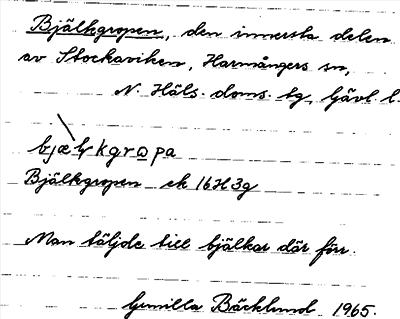 Bjälkgropen, den innersta delen
av Stockaviken, Harmångers sn,
N. Häls. doms. tg, Gävl. l.
bjælkgropa
Bjälkgropen ek 16H3g
Man täljde till bjälkar där förr.
Gunilla Bäcklund 1965.